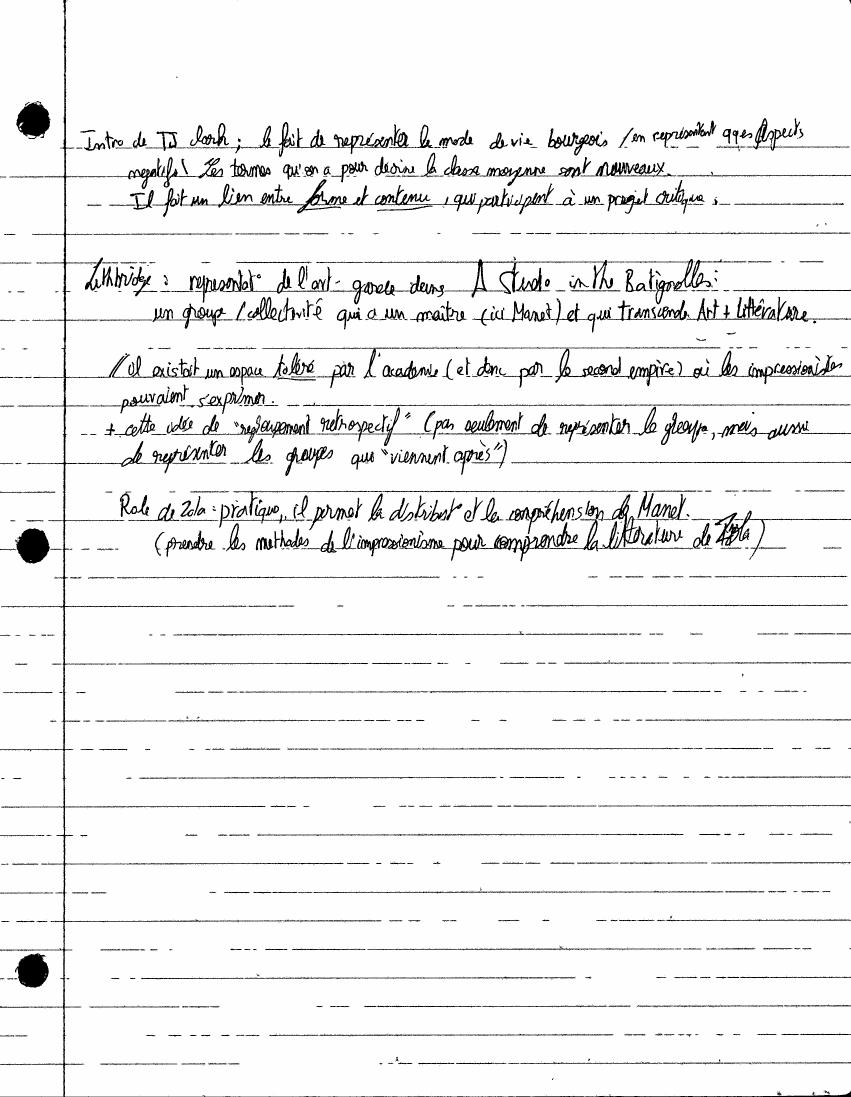 Intro de TJ Clark ; le fait de représenter le mode de vie bourgeois (en représentant qqes Aspects
negatifs) Les termes qu'on a pour decrire la classe moyenne sont nouveaux.
Il fait un lien entre forme et contenu, qui participent à un projet critique ;
Lethbridge : representat° de l'avt-garde dans A Studio in the Batignolles :
un groupe / collectivité qui a un maître (ici Manet) et qui transcende Art + Littérature.
// il existait un espace toléré par l'academie (et donc par le second empire) où les impressionistes
pouvaient s'exprimer.
+ cette idée de "regroupement retrospectif" (pas seulement de représenter le groupe, mais aussi
de représenter les groupes que "viennent après")
Role de Zola : pratique, il permet la distribut° et la compréhension de Manet.
(prendre les methodes de l'impressionisme pour comprendre la litterature de Zola)